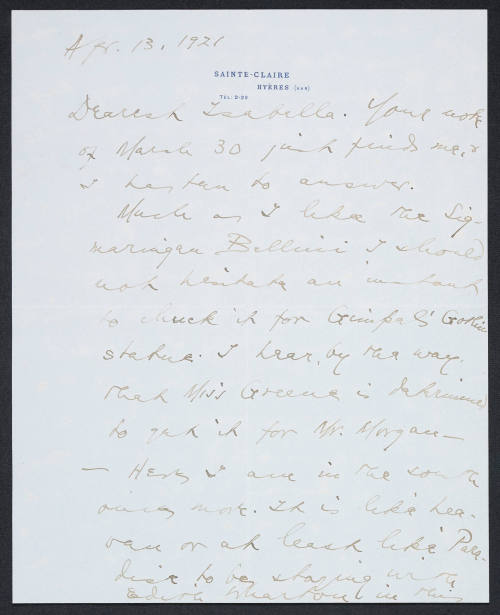 Apr. 13, 1921
SAINTE-CLAIRE
HYÈRES (VAR)
TEL: 2-29
Dearest Isabella. Your note
of March 30 just finds me, &
I hasten to answer.
Much as I like the Sig-
maringen Bellini I should
not hesitate an instant
to chuck it for Gimpel's Gothic
statue. I hear, by the way,
that Miss Greene is determined
to get it for Mr. Morgan—
— Here I am in the south
once more. It is like hea-
ven or at least like Para-
dise to be staying with
Edith Wharton in this